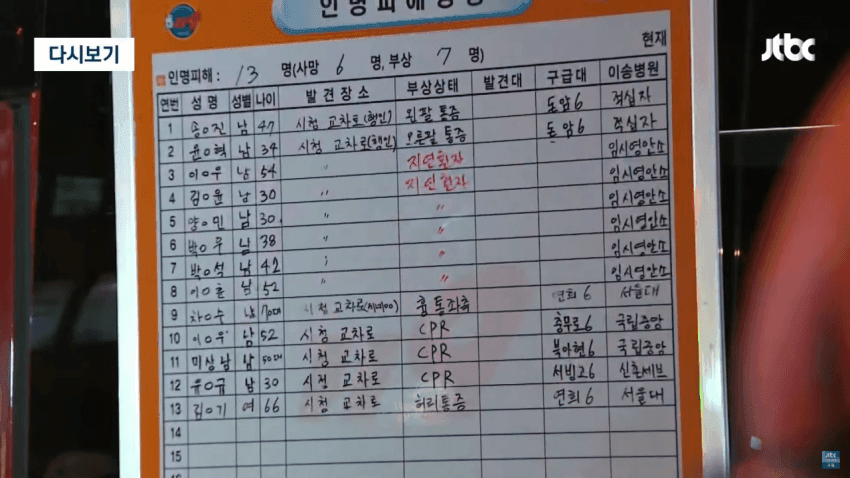 인명피해상황
다시보기
jtbc
현재
인명피해 : 13 명(사망 6 명, 부상 7 명)
연번 성명 성별 나이 발견장소 부상상태 발견대 구급대 이송병원
1 송○진 남 47 시청 교차로(행인) 왼팔 통증 돈암6 적십자
2 윤○혁 남 34 시청 교차로(행인) 오른팔 통증 돈암6 적십자
3 이○우 남 54 〃 지연환자 임시영안소
4 김○윤 남 30 〃 지연환자 임시영안소
5 양○민 남 30 〃 〃 임시영안소
6 박○우 남 38 〃 〃 임시영안소
7 박○석 남 42 〃 〃 임시영안소
8 이○훈 남 52 〃 〃 임시영안소
9 차○수 남 70대 시청 교차로 흉통좌측 연희6 서울대
10 이○우 남 52 시청 교차로 CPR 충무로6 국립중앙
11 미상남 남 50대 시청 교차로 CPR 북아현6 국립중앙
12 윤○규 남 30 시청 교차로 CPR 서빙고6 신촌세브
13 김○기 여 66 시청 교차로 허리통증 연희6 서울대
14
15
jtbc